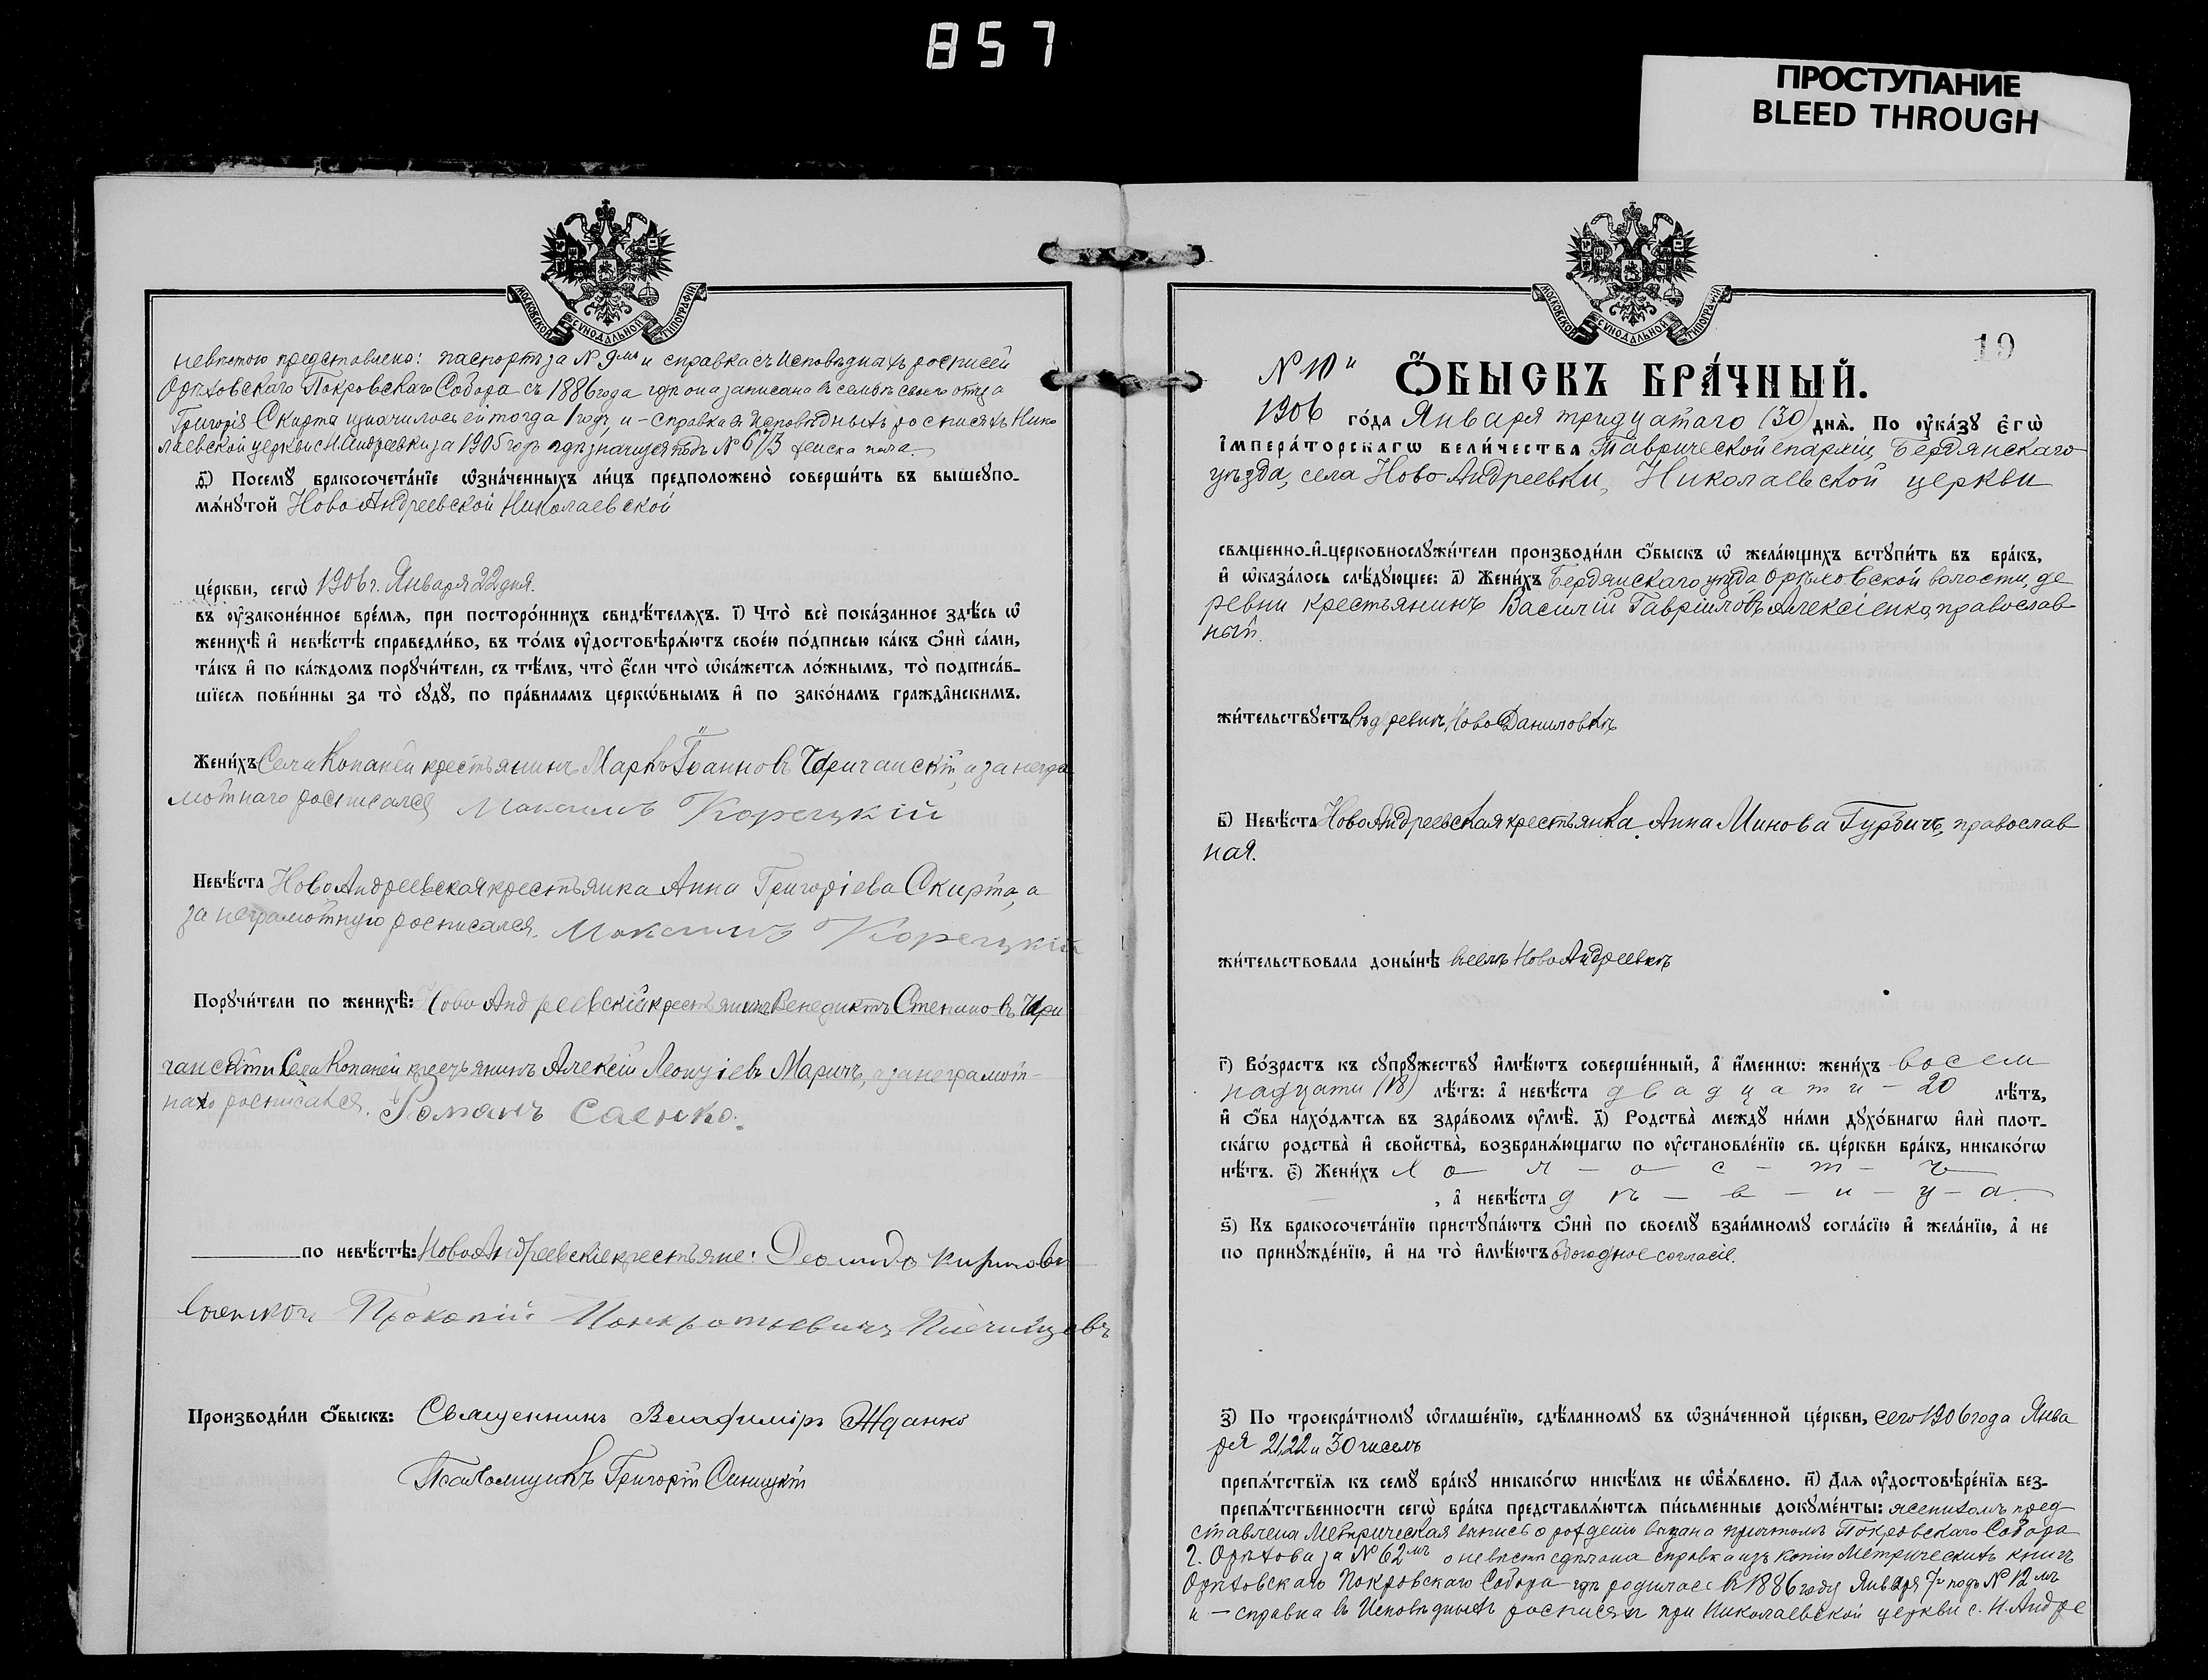 857
ПРОСТУПАНИЕ
BLEED THROUGH
МОСКОВСКОЙ СѴНОДАЛЬНОЙ ТИПОГРАФІИ
невѣстою представлено: паспортъ за № 9мъ и справка съ Исповѣдныхъ росписей
Орѣховскаго Покровскаго Собора съ 1886 года гдѣ она записана въ семьѣ своего отца
Григорія Скирта значилось ей тогда 1 годъ, и – справка въ Исповѣдныхъ росписяхъ Нико
лаевской церкви с. Н. Андреевки за 1905 годъ гдѣ значится подъ №
д҃) Посемꙋ бракосочета́нїе ѡ҆зна́ченныхъ ли́цъ предположено̀ соверши́ть въ вышеꙋпо-
мѧ́нꙋтой Ново Андреевской Николаевской
це́ркви, сегѡ̀ 1906 г. Января 22 дня.
въ ᲂу҆зако́ненное вре́мѧ, при посторо́ннихъ свидѣ́телѧхъ. і҃) Что̀ всѐ пока́занное здѣ́сь ѡ҆
женихѣ̀ и҆ невѣ́стѣ справедли́во, въ то́мъ ᲂу҆достовѣрѧ́ютъ свое́ю по́дписью ка́къ ѻ҆нѝ са́ми,
та́къ и҆ по ка́ждомъ порꙋчи́тели, съ тѣ́мъ, что̀ є҆́сли что̀ ѡ҆ка́жетсѧ ло́жнымъ, то̀ подписа́в-
шїесѧ пови́нны за то̀ сꙋдꙋ̀, по пра́виламъ церкѡ́внымъ и҆ по зако́намъ гражда́нскимъ.
Жени́хъ Села Копаней крестьянинъ Маркъ Іоанновъ Чричанскій, а за негра
мотнаго росписался Максимъ Корецкій
Невѣ́ста Ново Андреевская крестьянка Анна Григоріева Скирта, а
за неграмотную росписался. Максимъ Корецкій
Порꙋчи́тели по женихѣ̀: Ново Андреевскій крестьянинъ Венедиктъ Степановъ Чри
чанскій и Села Копаней крестьянинъ Алексій Леонтіевъ Маричъ, а за неграмот-
наго росписался. Романъ Саенко.
по невѣ́стѣ: Ново Андреевскіе крестьяне:
Прокопій Панкратьевичъ
Производи́ли ѻ҆́быскъ: Священникъ Владиміръ Жданко
Псаломщикъ Григорій Синицкій
МОСКОВСКОЙ СѴНОДАЛЬНОЙ ТИПОГРАФІИ
19
№ 10й
Ѻ҆́БЫСКЪ БРА́ЧНЫЙ.
1906 го́да Января тридцатаго (30) днѧ̀. По ᲂу҆ка́зꙋ є҆гѡ̀
і҆мпера́торскагѡ вели́чества Таврической епархіи, Бердянскаго
уѣзда, села Ново Андреевки, Николаевской церкви
свѧщенно-и҆-церковнослꙋжи́тели производи́ли ѻ҆́быскъ ѡ҆ жела́ющихъ встꙋпи́ть въ бра́къ,
и҆ ѡ҆каза́лось слѣ́дꙋющее: а҃) Жени́хъ Бердянскаго уѣзда Орѣховской волости, де
ревни крестьянинъ Василій Гавріиловъ Алексіенко, православ
ный.
жи́тельствꙋетъ въ деревнѣ Ново Даниловкѣ
в҃) Невѣ́ста Ново Андреевская крестьянка Анна Минова Гурбичъ, православ
ная.
жи́тельствовала доны́нѣ въ селѣ Ново Андреевкѣ
г҃) Во́зрастъ къ сꙋпрꙋ́жествꙋ и҆мѣ́ютъ соверше́нный, а҆ и҆́меннѡ: жени́хъ восем
надцати (18) лѣ́тъ: а҆ невѣ́ста двадцати – 20 лѣ́тъ,
и҆ ѻ҆́ба нахо́дѧтсѧ въ здра́вомъ ᲂу҆мѣ̀. д҃) Родства̀ междꙋ̀ ни́ми дꙋхо́внагѡ и҆лѝ плот-
ска́гѡ родства̀ и҆ сво́йства̀, возбранѧ́ющагѡ по ᲂу҆становле́нїю св. це́ркви бра́къ, никако́гѡ
нѣ́тъ. є҃) Жени́хъ холостъ
, а҆ невѣ́ста дѣвица.
ѕ҃) Къ бракосочета́нїю пристꙋпа́ютъ ѻ҆нѝ по своемꙋ̀ взаи́мномꙋ согла́сїю и҆ жела́нїю, а҆ не
по принꙋжде́нїю, и҆ на то̀ и҆мѣ́ютъ обоюдное согласіе.
з҃) По троекра́тномꙋ ѡ҆глаше́нїю, сдѣ́ланномꙋ въ ѡ҆зна́ченной це́ркви, сего 1906 года Янва
ря 21, 22 и 30 чиселъ
препѧ́тствїѧ къ семꙋ̀ бра́кꙋ никако́гѡ никѣ́мъ не ѡ҆б̾ѧ́влено. и҃) Длѧ ᲂу҆достовѣре́нїѧ без-
препѧ́тственности сегѡ̀ бра́ка представлѧ́ютсѧ пи́сьменные докꙋме́нты: женихомъ пред
ставлена Метрическая выпись о рожденіи выдана причтомъ Покровскаго Собора
г. Орѣхова за № 62мъ о невѣстѣ сдѣлана справка изъ копіи Метрическихъ книгъ
Орѣховскаго Покровскаго Собора гдѣ родилась въ 1886 году Января 7го подъ № 12мъ
и – справка въ Исповѣдныхъ росписяхъ при Николаевской церкви с. Н. Андре